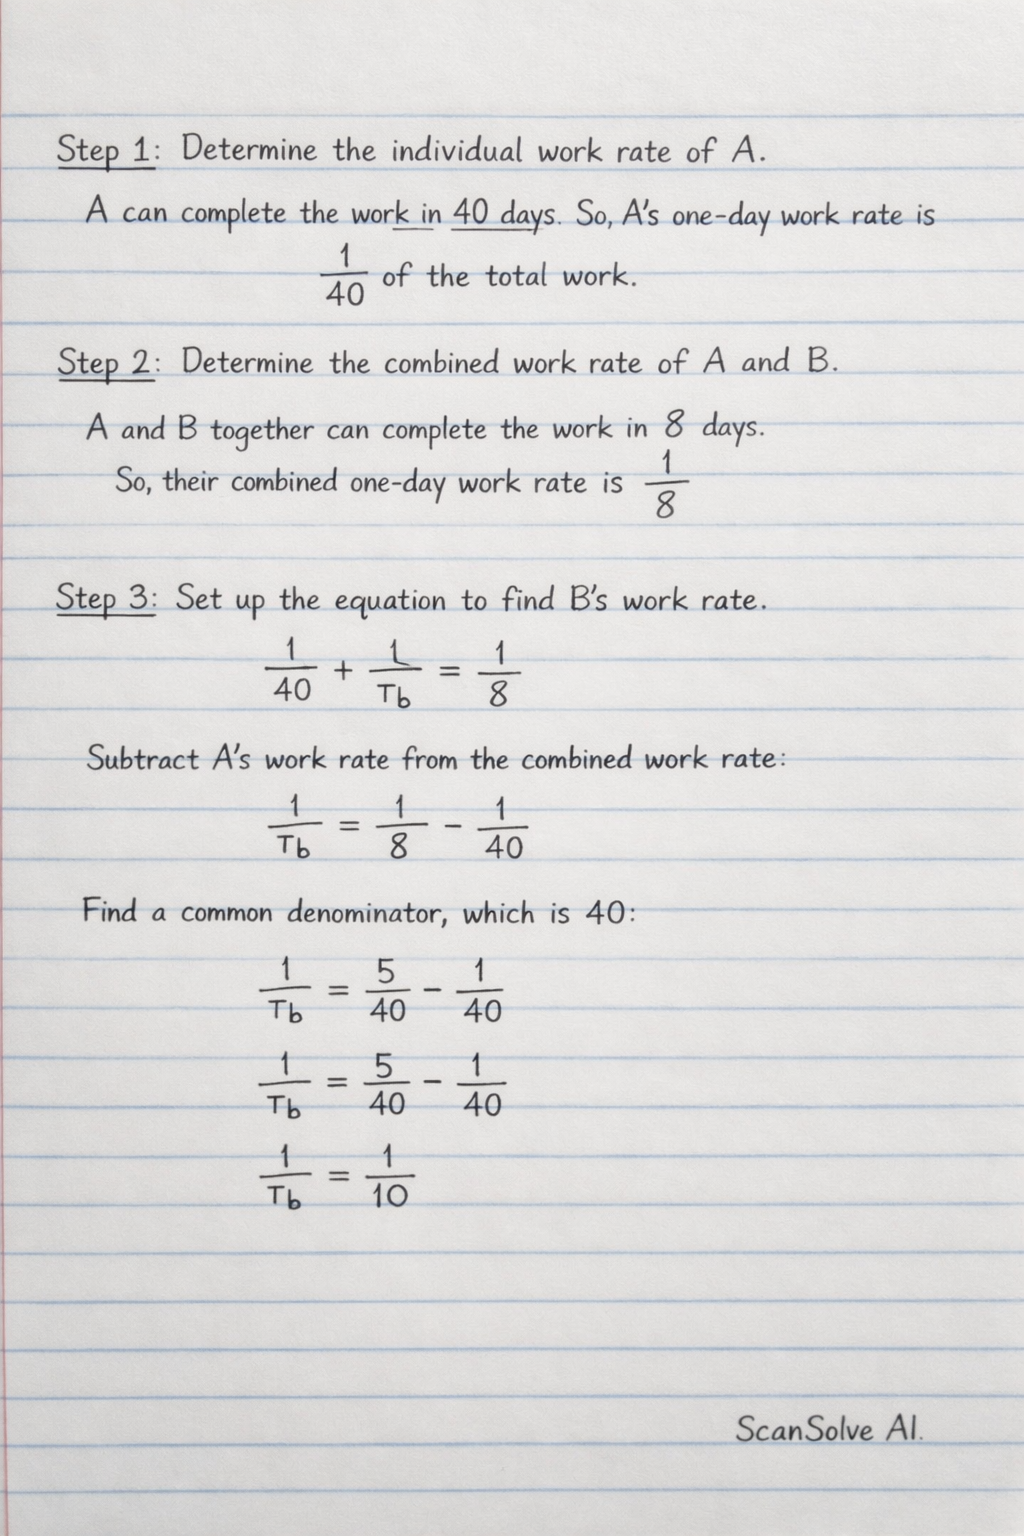 Step 1: Determine the individual work rate of A.
A can complete the work in 40 days. So, A's one-day work rate is
1/40 of the total work.
Step 2: Determine the combined work rate of A and B.
A and B together can complete the work in 8 days.
So, their combined one-day work rate is 1/8
Step 3: Set up the equation to find B's work rate.
1/40 + 1/Tb = 1/8
Subtract A's work rate from the combined work rate:
1/Tb = 1/8 - 1/40
Find a common denominator, which is 40:
1/Tb = 5/40 - 1/40
1/Tb = 5/40 - 1/40
1/Tb = 1/10
ScanSolve AI.